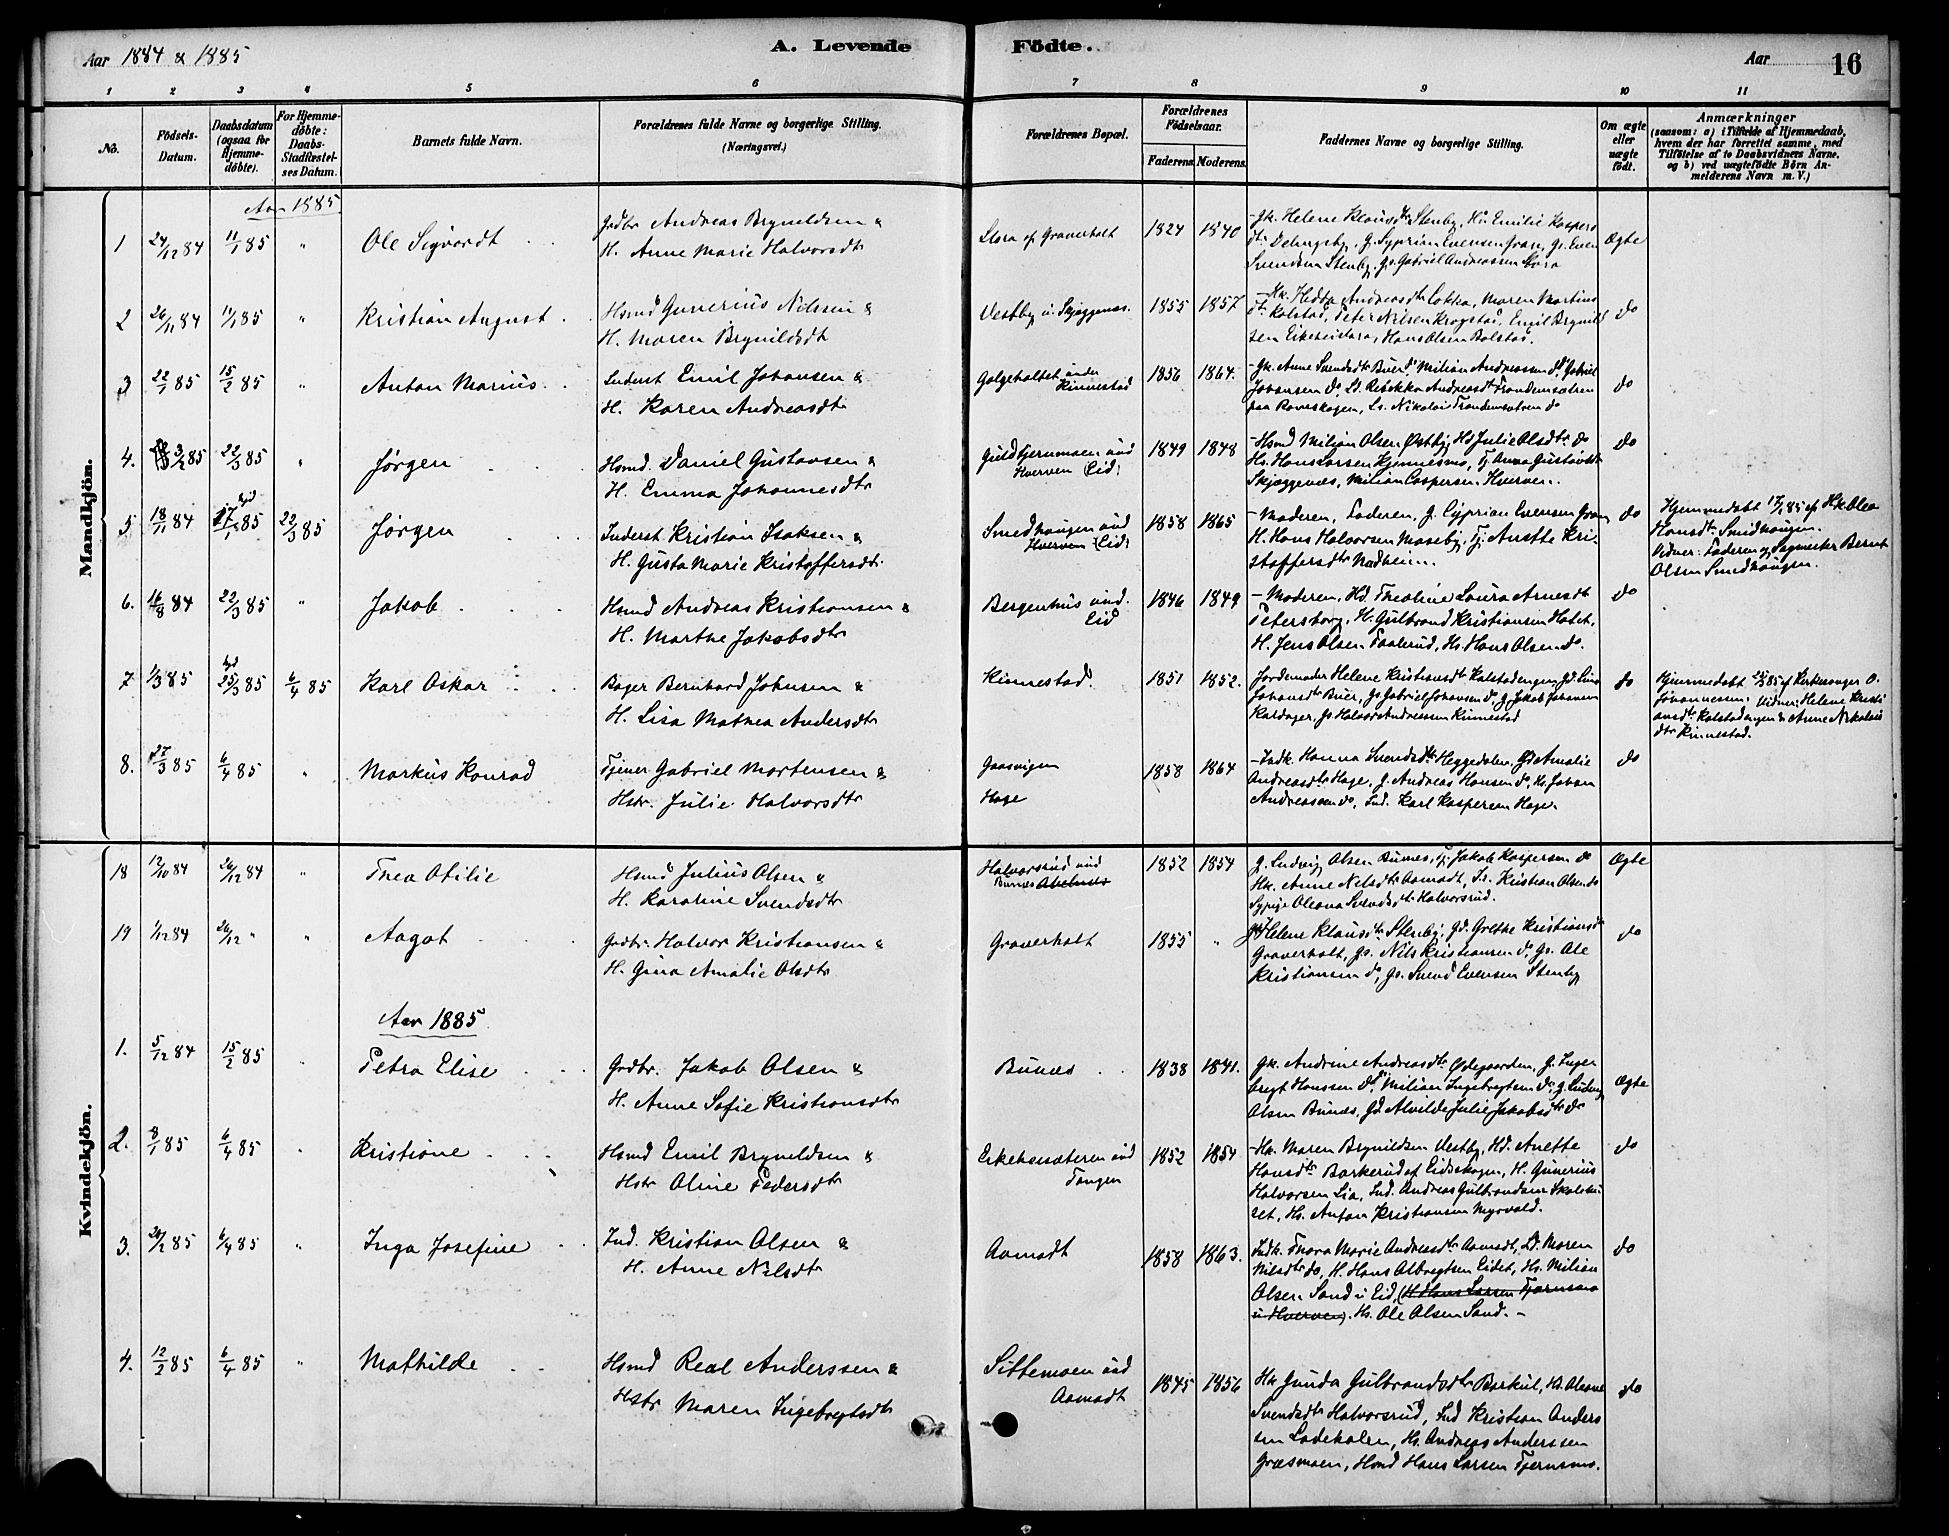 Aar 1884 & 1885
A. Levende
Födte.
Aar
16
1 2 3 4 5 6 7 8 9 10 11
No.
Födsels-
Datum.
Daabsdatum
(ogsaa for
Hjemme-
döbte).
For Hjemme-
döbte:
Daabs-
Stadfæstel-
ses Datum.
Barnets fulde Navn.
Forældrenes fulde Navne og borgerlige Stilling.
(Næringsvei.)
Forældrenes Bopæl.
Forældrenes
Födselsaar.
Faderens. Moderens.
Faddernes Navne og borgerlige Stilling.
Om ægte
eller
uægte
födt.
Anmærkninger
(saasom: a) i Tilfælde af Hjemmedaab,
hvem der har forrettet samme, med
Tilföielse af to Daabsvidners Navne,
og b) ved uægtefödte Börn An-
melderens Navn m. V.)
Mandkjön.
Aar 1885
1 24/12 84 11/1 85 " Ole Sigvardt
Grdbr Andreas Brynildsen &
H. Anne Marie Halvorsdtr
Stora af Graverholt 1824 1840
Gk. Helene Klausdtr Stenby, Hu. Emilie Kaspers
dtr Delingsby, G. Syprian Evensen Gran, Gs. Even
Svendsen Stenby, Gs. Gabriel Andreassen Stora
Ægte
2 26/11 84 11/1 85 " Kristian August
Hsmd Gunerius Nilssen &
H. Maren Brynildsdt
Vestby u. Skjæggenæs. 1855 1857
Hk. Hedda Andreasdtr Lokka, Maren Martins
dtr Kolstad, Peter Nilsen Krogstad, Emil Brynild
sen Eikeseidara, Hans Olsen Bolstad.
do
3 22/1 85 15/2 85 " Anton Marius
Inderst Emil Johansen &
H. Karen Andreasdtr
Galgeholtet under
Kinnestad 1856 1864.
Gk. Anne Svendsdtr Buer, Milian Andreassen do, Gabriel
Johansen do, Ld. Rebekka Andreasdt Trandemsætren
paa Raveskogen, Ls. Nikolai Trandemsætren do
do
4. 3/2 85 22/3 85 " Jørgen
Hsmd. Daniel Gustavsen &
H. Emma Johannesdtr
Guldtjernmoen und
Hverven (Eid) 1849 1848
Hsmd Milian Olsen Østby, Hd Julie Olsdtr do
Hs. Hans Larsen Kjennesmo, Tj. Anna Gustavsdt
Skjæggenæs, Milian Caspersen Hverven.
do
5. 18/11 84 17/1 85 22/3 85 Jørgen
Inderst Kristian Isaksen &
H. Gusta Marie Kristoffersdtr
Smedhaugen und
Hverven (Eid) 1858 1865
Moderen, Faderen, G. Cyprian Evensen Gran
H. Hans Halvorsen Moseby, Tj. Anette Kri-
stoffersdtr Nadheim.
do
Hjemmedøbt 17/1 85 af Hk. Olea
Hansdtr Smedhaugen.
Vidner: Faderen og Sagmester Bernt
Olsen Smedhaugen.
6. 16/8 84 22/3 85 " Jakob
Hsmd Andreas Kristiansen &
H. Marthe Jakobsdtr
Bergenhus und.
Eid 1846 1849
Moderen, Hd. Theoline Laura Arnesdt
Petersborg, H. Gulbrand Kristiansen Hotet,
H. Jens Olsen Taalerud, Hs. Hans Olsen do.
do
7 1/3 85 25/3 85 6/4 85 Karl Oskar
Bager Bernhard Johnsen &
H. Lisa Mathea Andersdtr
Kinnestad. 1851 1852.
Jordemoder Helene Kristiansdt Kolstadengen, Gd. Lina
Johansdtr Buer, Gs Gabriel Johansen do, G. Jakob Johansen
Kardager, Gs Halvor Andreassen Kinnestad
do
Hjemmedøbt 25/3 85 af Kirkesanger O.
Johannesen: Vidner: Helene Kristi
ansdtr Kolstadengen & Anne Nikolais
dtr Kinnestad.
8. 27/3 85 6/4 85 " Markus Konrad
Tjener Gabriel Mortensen &
Hstr. Julie Halvorsdtr
Gaasvigen
Hage 1858 1864
Indk. Hanna Svendsdtr Heggedalen, Gd Amalie
Andreasdtr Hage, G. Andreas Hansen do, Hs. Johan
Andreassen do, Ind. Karl Kaspersen Hage.
do
Kvindekjön.
18 12/10 84 26/12 84 " Thea Otilie
Hsmd Julius Olsen &
H. Karoline Svendsdtr
Halvorsrud und
Bunæs 1852 1854
G. Ludvig Olsen Bunæs, Tj. Jakob Kaspersen do
Hk. Anne Nilsdtr Aamodt, Is. Kristian Olsen do
Sypige Oleana Svendsdtr Halvorsrud.
Ægte
19 1/12 84 26/12 " " Aagot
Grdbr. Halvor Kristiansen &
H. Gina Amalie Olsdtr
Graverholt 1855 "
Gk Helene Klausdtr Stenby, Gd. Grethe Kristiansdtr
Graverholt, Gs. Nils Kristiansen do, Gs. Ole
Kristiansen do, Gs. Svend Evensen Stenby
do
Aar 1885
1. 5/12 84 15/2 85 " Petra Elise
Grdbr. Jakob Olsen &
H. Anne Sofie Kristiansdtr
Bunæs 1838 1841.
Gk. Andrine Andreasdtr Ødegaarden, G. Inge-
bregt Hanssen do, Milian Ingebregtsen do, G. Ludvig
Olsen Bunæs, Gd Alvilde Julie Jakobsdtr do
Ægte
2. 8/1 85 6/4 85 " Kristiane
Hsmd Emil Brynildsen &
Hstr Oline Pedersdtr
Eikehessæteren und
Tangen 1852 1854
Hk. Maren Brynildsen Vestby, Hd. Anette
Hansdtr Barkerud af Eidsskogen, H. Gunerius
Halvorsen Lia, Ind. Andreas Gulbrandsen Skolehu-
set, Hs. Anton Kristiansen Myrvold.
do
3. 26/2 85 6/4 85 " Inga Josefine
Ind. Kristian Olsen &
H. Anne Nilsdtr
Aamodt 1858 1863.
Indk. Thora Marie Andreasdtr Aamodt, Ld. Maren
Nilsdtr do, H. Hans Albregtsen Eidet, Hs. Milian
Olsen Sand u Eid, (H. Hans Larsen Tjernsmo
u Hverven). Hs. Ole Olsen Sand. -
do
4. 12/2 85 6/4 85 " Mathilde
Hsmd Real Anderssen &
Hstr Maren Ingebregtsdtr
Sittemoen und
Aamodt 1845 1856
Hk. Gunda Gulbrandsdtr Barkul, Hd. Oleane
Svendsdtr Halvorsrud, Ind Kristian Anders
sen Ladekalen, Hs. Andreas Anderssen
Græsmoen, Hsmd Hans Larsen Tjernsmo.
do